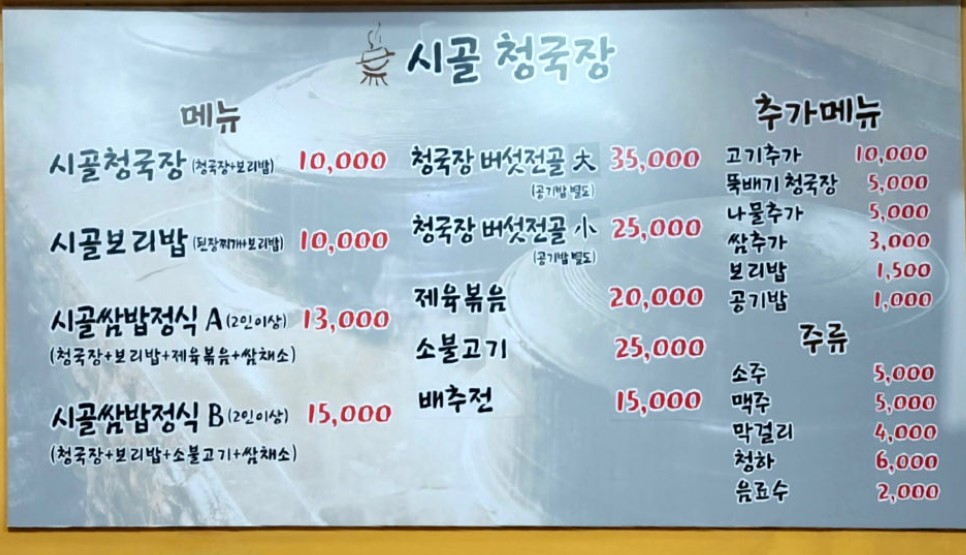 시골 청국장
메뉴
시골청국장 (청국장+보리밥) 10,000
시골보리밥 (된장찌개+보리밥) 10,000
시골쌈밥정식 A (2인이상) 13,000
(청국장+보리밥+제육볶음+쌈채소)
시골쌈밥정식 B (2인이상) 15,000
(청국장+보리밥+소불고기+쌈채소)
청국장 버섯전골 大 35,000
(공기밥 별도)
청국장 버섯전골 小 25,000
(공기밥 별도)
제육볶음 20,000
소불고기 25,000
배추전 15,000
추가메뉴
고기추가 10,000
뚝배기 청국장 5,000
나물추가 5,000
쌈추가 3,000
보리밥 1,500
공기밥 1,000
주류
소주 5,000
맥주 5,000
막걸리 4,000
청하 6,000
음료수 2,000